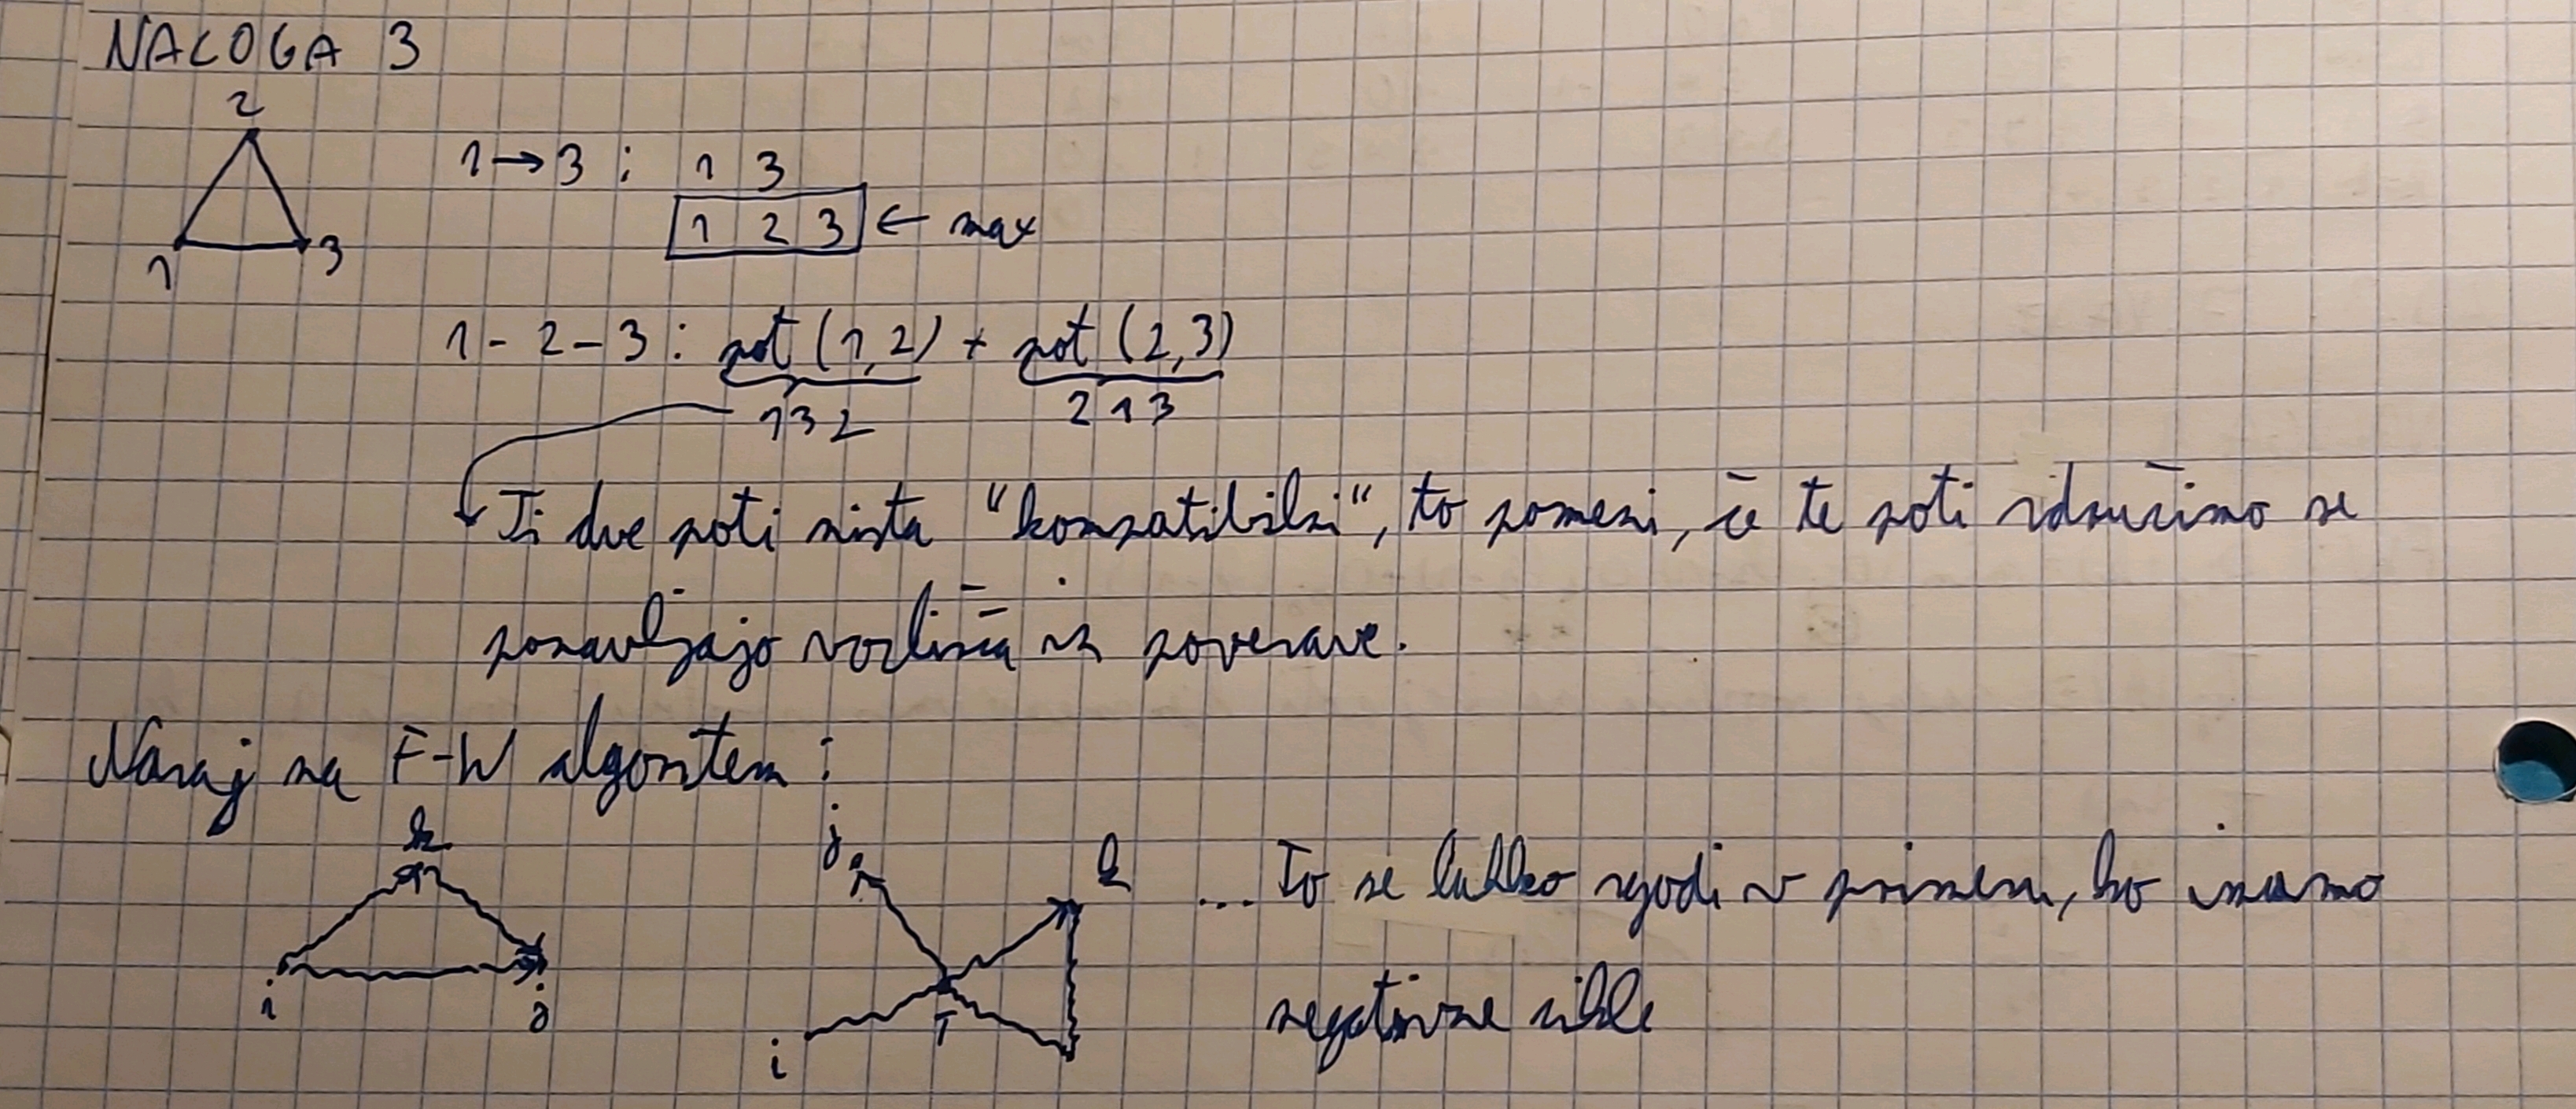 NALOGA 3
2
1 3
1 → 3 : 1 3
1 2 3 ← max
1 - 2 - 3 : pot (1,2) + pot (2,3)
132 213
Ti dve poti nista "kompatibilni", to pomeni, če te poti združimo se
ponavljajo vozlišča in povezave.
Nazaj na F-W algoritem :
k
i j
j k
i T
... To se lahko zgodi v primeru, ko imamo
negativne cikle